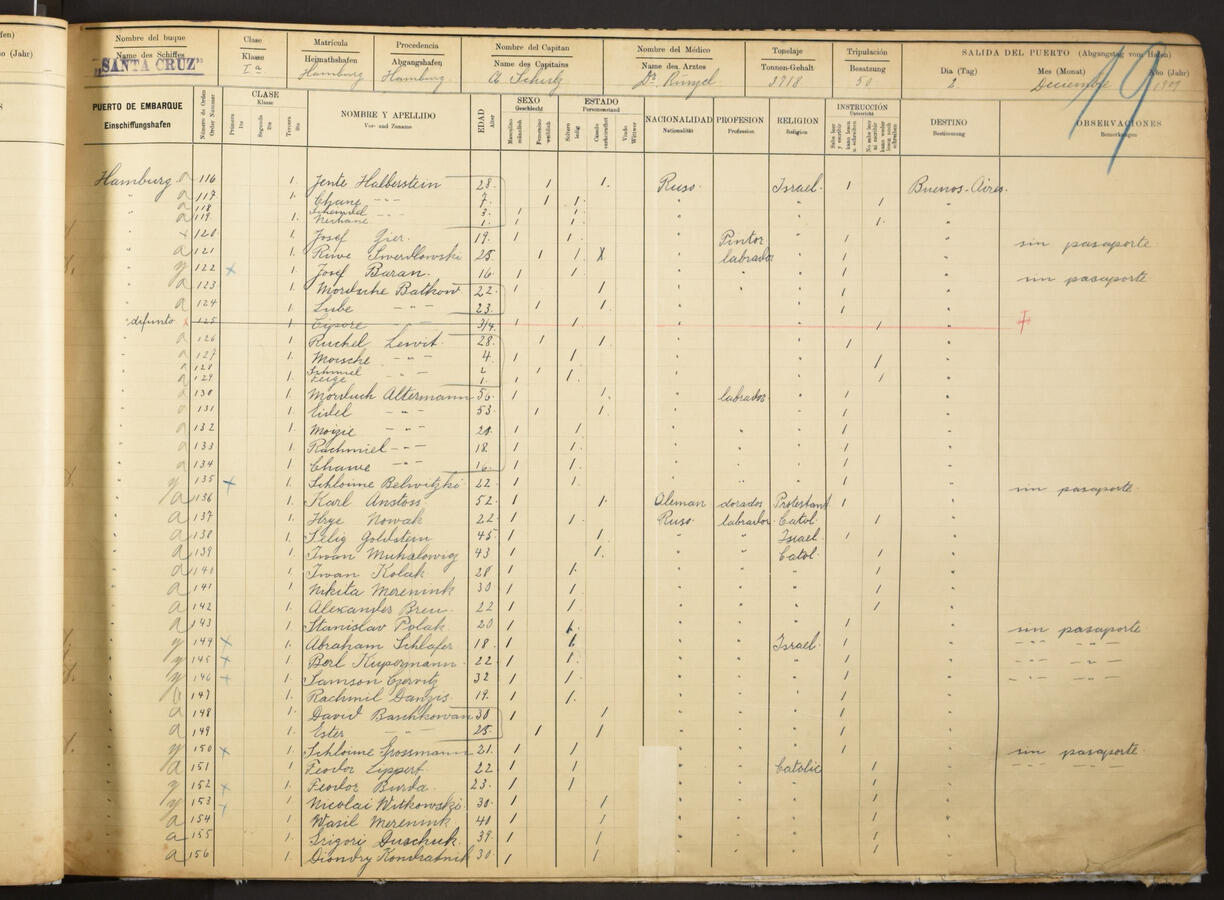 Nombre del buque
Name des Schiffes
"SANTA CRUZ"
Clase
Klasse
Iª
Matrícula
Heimathshafen
Hamburg
Procedencia
Abgangshafen
Hamburg
Nombre del Capitan
Name des Capitains
A. Schulz
Nombre del Médico
Name des Arztes
Dr. Küngel
Tonelaje
Tonnen-Gehalt
3718
Tripulación
Besatzung
50
SALIDA DEL PUERTO (Abgangstag vom Hafen)
Dia (Tag)
2
Mes (Monat)
Decembre
Año (Jahr)
1909
19
PUERTO DE EMBARQUE
Einschiffungshafen
Número de Orden
Order Nummer
CLASE
Klasse
Primera
Segunda
Tercera
NOMBRE Y APELLIDO
Vor- und Zuname
EDAD
Alter
SEXO
Geschlecht
Masculino
männlich
Femenino
weiblich
ESTADO
Personenstand
Soltero
ledig
Casado
verheirathet
Viudo
Wittwer
NACIONALIDAD
Nationalität
PROFESION
Profession
RELIGION
Religion
INSTRUCCIÓN
Unterricht
DESTINO
Bestimmung
OBSERVACIONES
Bemerkungen
Hamburg a 116 1. Jente Halberstein 28 1 1. Ruso Israel 1 Buenos-Aires
" a 117 1. Chane - - - 7. 1 1. " 1 "
" a 118 Schendel 3. 1 1.
" a 119. 1. Nechane 1. 1 1. " 1. "
" x 120 1. Josef Gier. 19. 1 1. " Pintor " 1 " sin pasaporte
" a 121 1. Riwe Swerdlowski 25. 1 1. X " labrador " 1 "
" y 122 x 1. Josef Baran. 16 1 1 " " " 1 " sin pasaporte
" a 123 1. Mordsche Batkow 22. 1 1 " " " 1 "
" a 124 1. Lube - - - 23. 1 1 " " 1 "
" difunto x 125 1. Cipore - 3/4. 1 1 1 "
" a 126 1. Ruchel Lewit. 28. 1 1 " " 1 "
" a 127 1. Moische - - - 4. 1 1 " " 1 "
" a 128 Schmiel 1
" a 129 1. 1. 1 1. " " 1 "
" a 130 1. Morduch Altermann 56. 1 1. " labrador " 1 "
" a 131 1. Eidel - - - 53. 1 1. " " 1 "
" a 132 1. Moizie - - - 20. 1 1 " " " 1 "
" a 133 1. Rachmiel - - - 18. 1 1. " " " 1 "
" a 134 1. Chawe - - - 16. 1 1. " " " 1 "
" y 135 x 1. Schloime Belwitzki 22. 1 1. " " " 1 " sin pasaporte
" a 136 1. Karl Anstoss 52. 1 1. Aleman dorados Protestant 1 "
" a 137 1. Hrye Nowak 22 1 1. Ruso labrador Catol. 1 "
" a 138 1. Selig Goldstein 45. 1 1. " " Israel. 1 "
" a 139 1. Iwan Muhalowig 43 1 1. " " Catol. 1 "
" a 141 1. Iwan Kolak 28 1 1. " " " 1 "
" a 141 1. Nikita Merenink 30 1 1. " " " 1 "
" a 142 1. Alexander Breu. 22 1 1. " " " 1 "
" a 143 1. Stanislav Polak. 20 1 1. " " " 1 " sin pasaporte
" y 144 x 1. Abraham Schlafer 18. 1 1. " " Israel. 1 " - - - - - -
" y 145 x 1. Berl Kupermann 22. 1 1. " " " 1 " - - - - - -
" y 146 x 1. Samson Czerwitz 32 1 1. " " " 1 " - - - - - -
" 147 1. Rachmil Danzis 19. 1 1. " " " 1 "
" a 148 1. David Baschkowan 30 1 1 " " " 1 "
" a 149 1. Ester - - - 25. 1 1 " " " 1 "
" y 150 x 1. Schloime Grossmann 21. 1 1 " " " 1 " sin pasaporte
" a 151 1. Feodor Lippert. 22 1 1. " " Catolic 1 " - - - - - -
" y 152 x 1. Feodor Burda. 23. 1 1 " " " 1 "
" y 153 x 1. Nicolai Witkowski 30. 1 1 " " " 1 "
" a 154 1. Wasil Merenink 40 1 1 " " " 1 "
" a 155 1. Grigori Duschuk. 39. 1 1 " " " 1 "
" a 156 1. Diondry Kondratnik 30. 1 1 " " " 1 "